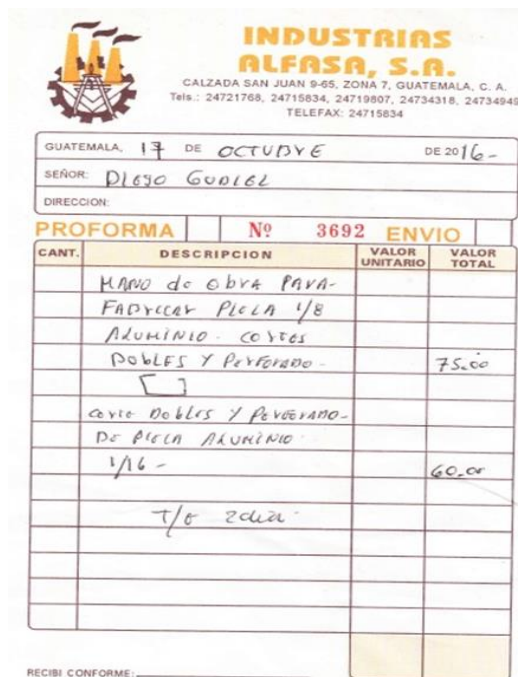 INDUSTRIAS
ALFASA, S.A.
CALZADA SAN JUAN 9-65, ZONA 7, GUATEMALA, C. A.
Tels.: 24721768, 24715834, 24719807, 24734318, 24734949
TELEFAX: 24715834
GUATEMALA, 17 DE OCTUBRE DE 2016-
SEÑOR: DIEGO GUDIEL
DIRECCION:
PROFORMA Nº 3692 ENVIO
CANT. DESCRIPCION VALOR UNITARIO VALOR TOTAL
MANO de OBRA PARA-
FABRICAR PIEZA 1/8
ALUMINIO - CORTES
DOBLES Y PERFORADO - 75.00
CORTE DOBLES Y PERFORADO-
DE PIEZA ALUMINIO
1/16 - 60.00
T/E 2 dia
RECIBI CONFORME: